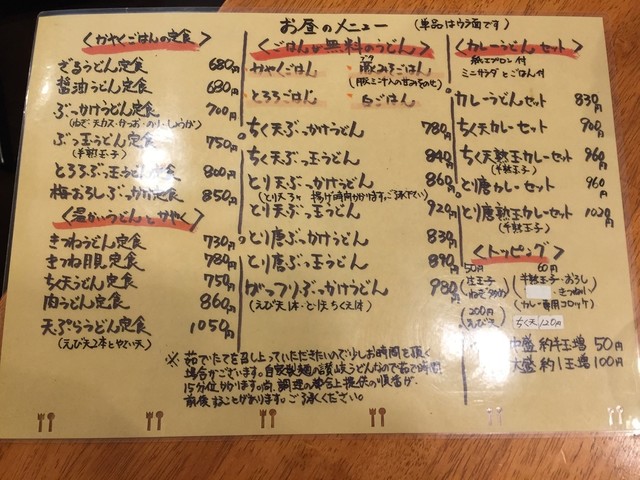 お昼のメニュー (単品はウラ面です)
<かやくごはんの定食>
ざるうどん定食 680円
醤油うどん定食 680円
ぶっかけうどん定食 700円
(ねぎ・天カス・かつお・のり・しょうが)
ぶっ玉うどん定食 750円
(半熟玉子)
とろろぶっ玉うどん定食 800円
梅おろしぶっかけ定食 850円
<温かいうどんとかやく>
きつねうどん定食 730円
きつね月見定食 780円
ちく天うどん定食 750円
肉うどん定食 860円
天ぷらうどん定食 1050円
(えび天2本とやさい天)
<ごはんが無料のうどん>
かやくごはん 豚みそごはん
とろろごはん 白ごはん
ちく天ぶっかけうどん 780円
ちく天ぶっ玉うどん 840円
とり天ぶっかけうどん 860円
とり天ぶっ玉うどん 920円
とり唐ぶっかけうどん 830円
とり唐ぶっ玉うどん 890円
がっつりぶっかけうどん 980円
(えび天1本・とり天・ちくえ1本)
<カレーうどんセット>
紙エプロン付
ミニサラダとごはん付
カレーうどんセット 830円
ちく天カレーセット 900円
ちく天熟玉カレーセット 960円
(半熟玉子)
とり唐カレーセット 960円
とり唐熟玉カレーセット 1020円
(半熟玉子)
<トッピング>
50円 60円
半熟玉子・おろし
・きつね
(カレー専用コロッケ)
200円
えび天
ちく天120円
中盛 約半玉増 50円
大盛 約1玉増 100円
※ 茹でたてを召し上っていただきたいので少しお時間を頂く
場合がございます。自家製麺の讃岐うどんなので茹で時間
15分位かかります。尚、調理の都合上提供の順番が
前後することがあります。ご了承ください。